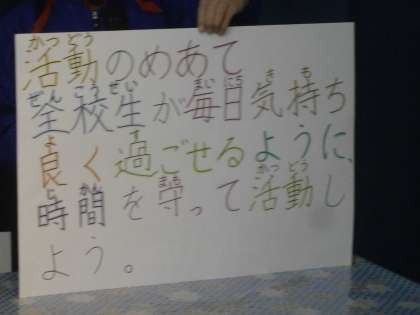 活動のめあて
全校生が毎日気持ち
良く過ごせるように、
時間を守って活動し
よう。